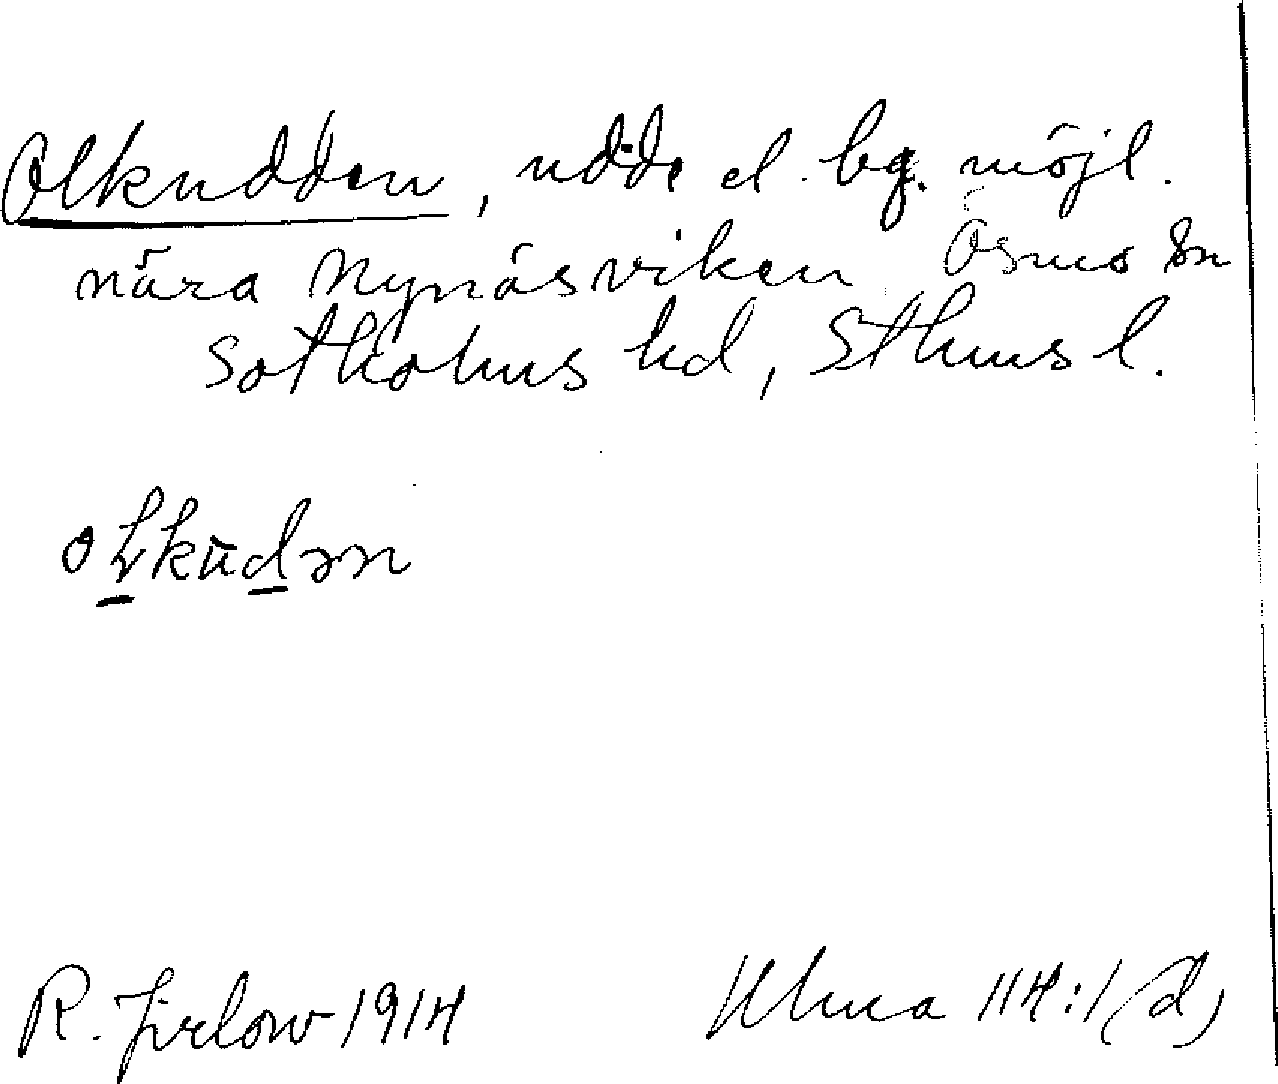 Olkudden, udde el. bg. möjl.
nära Nynäsviken Ösmo sn
Sotholms hd, Sthms l.
ołkūdən
R. Jirlow 1914
Ulma 114:1 (d)